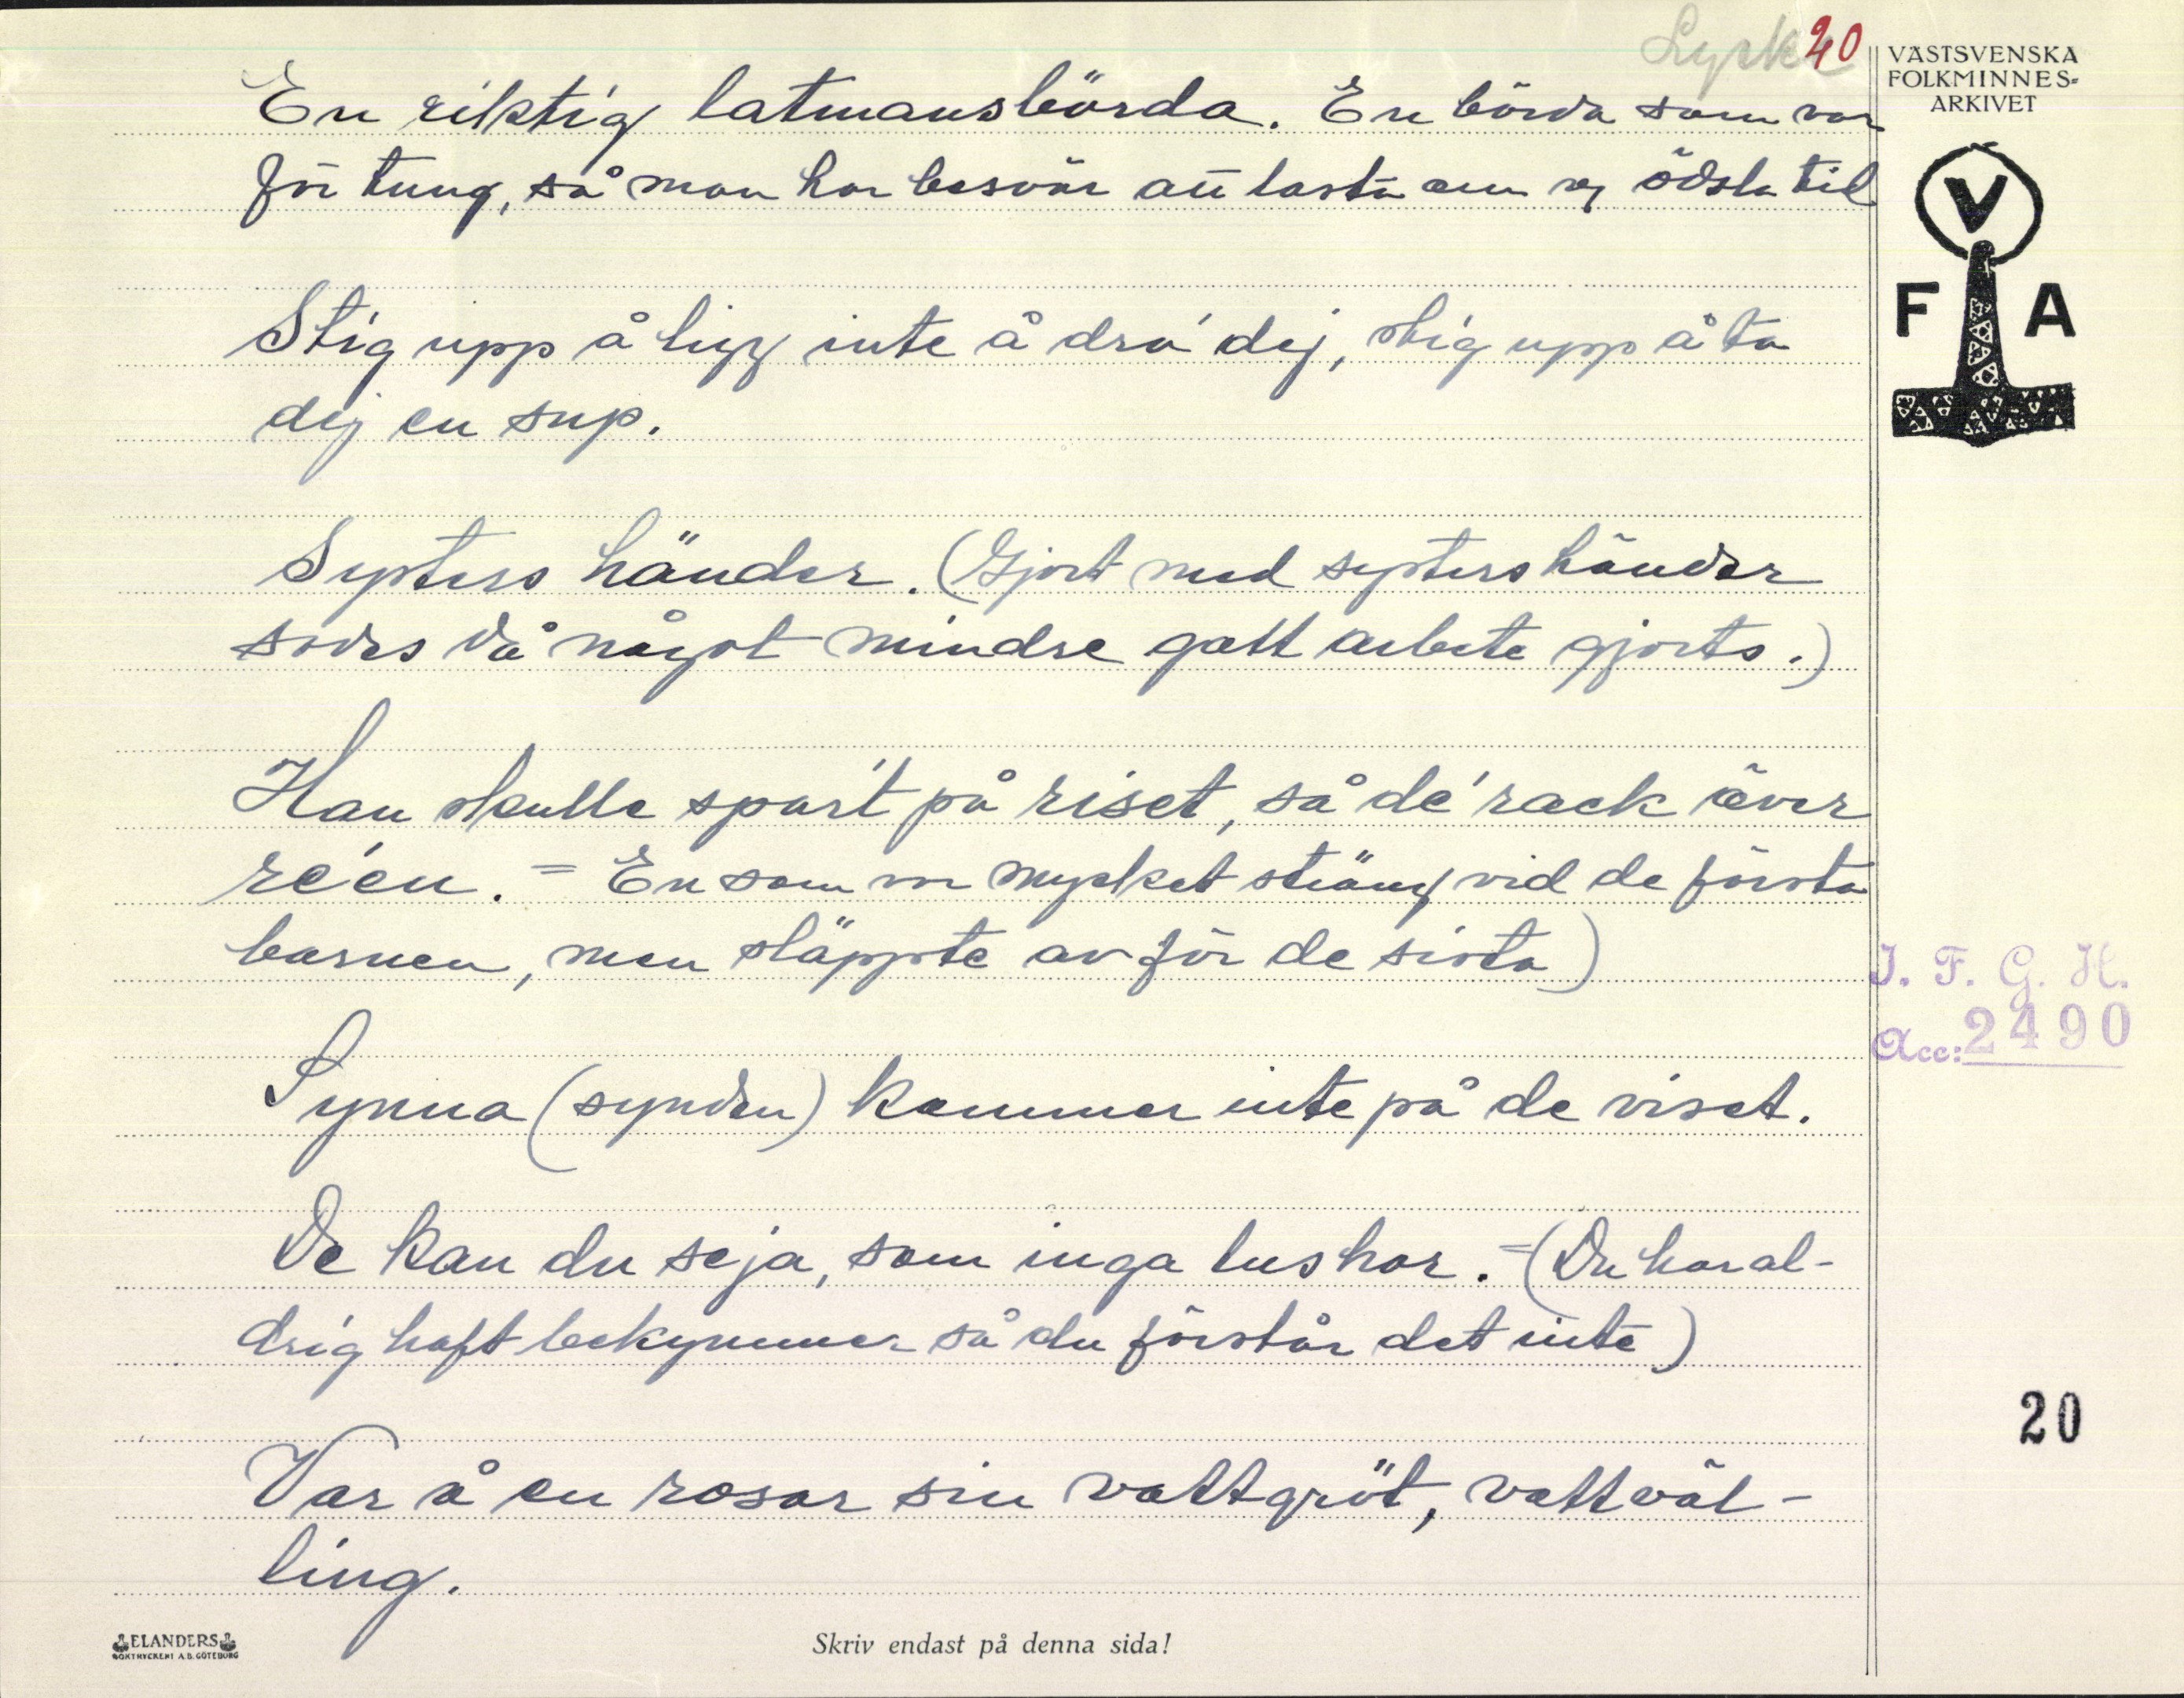 Lysk 20
VÄSTSVENSKA
FOLKMINNES-
ARKIVET
V
F A
En riktig latmansbörda. En börda som var
för tung, så man har besvär att lasta om
Stig upp å ligg inte å dra' dej, stig upp å ta
dej en sup.
Systers händer. (Gjort med systers händer
sades då något mindre gott arbete gjorts.)
Han skulle spar't på riset, så de' rack över
re'en. = En som var mycket sträng vid de första
barnen, men släppte av för de sista)
Synna (synden) kommer inte på de viset.
De kan du seja, som inga lus har. = (Du har al-
drig haft bekymmer så du förstår det inte)
Var å en rosar sin vattgröt, vattväl-
ling.
I. F. G. H.
Acc: 2490
20
ELANDERS
BOKTRYCKERI A.B. GÖTEBORG
Skriv endast på denna sida!